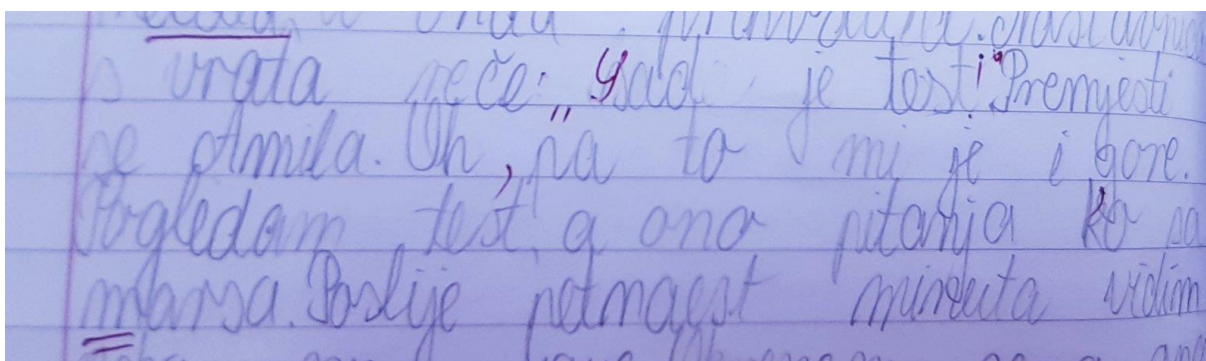 s vrata reče: „Sad je test!" Premjesti
se Amila. Uh, pa to mi je i gore.
Pogledam test, a ono pitanja ko sa
marsa. Poslije petnaest minuta vidim